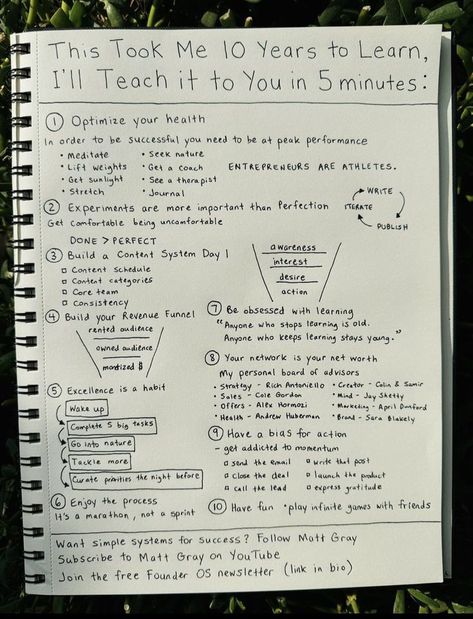 This Took Me 10 Years to Learn,
I'll Teach it to You in 5 minutes:
① Optimize your health
In order to be successful you need to be at peak performance
• Meditate
• Lift weights
• Get sunlight
• Stretch
• Seek nature
• Get a coach
• See a therapist
• Journal
ENTREPRENEURS ARE ATHLETES.
② Experiments are more important than Perfection
Get comfortable being uncomfortable
DONE > PERFECT
WRITE
ITERATE
PUBLISH
③ Build a Content System Day 1
Content Schedule
Content categories
Core team
Consistency
awareness
interest
desire
action
④ Build your Revenue Funnel
rented audience
owned audience
montized $
⑤ Excellence is a habit
Wake up
Complete 5 big tasks
Go into nature
Tackle more
Curate priorities the night before
⑥ Enjoy the process
It's a marathon, not a sprint
⑦ Be obsessed with learning
"Anyone who stops learning is old.
Anyone who keeps learning stays young."
⑧ Your network is your net worth
My personal board of advisors
• Strategy - Rich Antoniello
• Sales - Cole Gordon
• Offers - Alex Hormozi
• Health - Andrew Huberman
• Creator - Colin & Samir
• Mind - Jay Shetty
• Marketing - April Dunford
• Brand - Sara Blakely
⑨ Have a bias for action
- get addicted to momentum
send the email
close the deal
call the lead
write that post
launch the product
express gratitude
⑩ Have fun • play infinite games with friends
Want simple systems for success? Follow Matt Gray
Subscribe to Matt Gray on YouTube
Join the free Founder OS newsletter (link in bio)